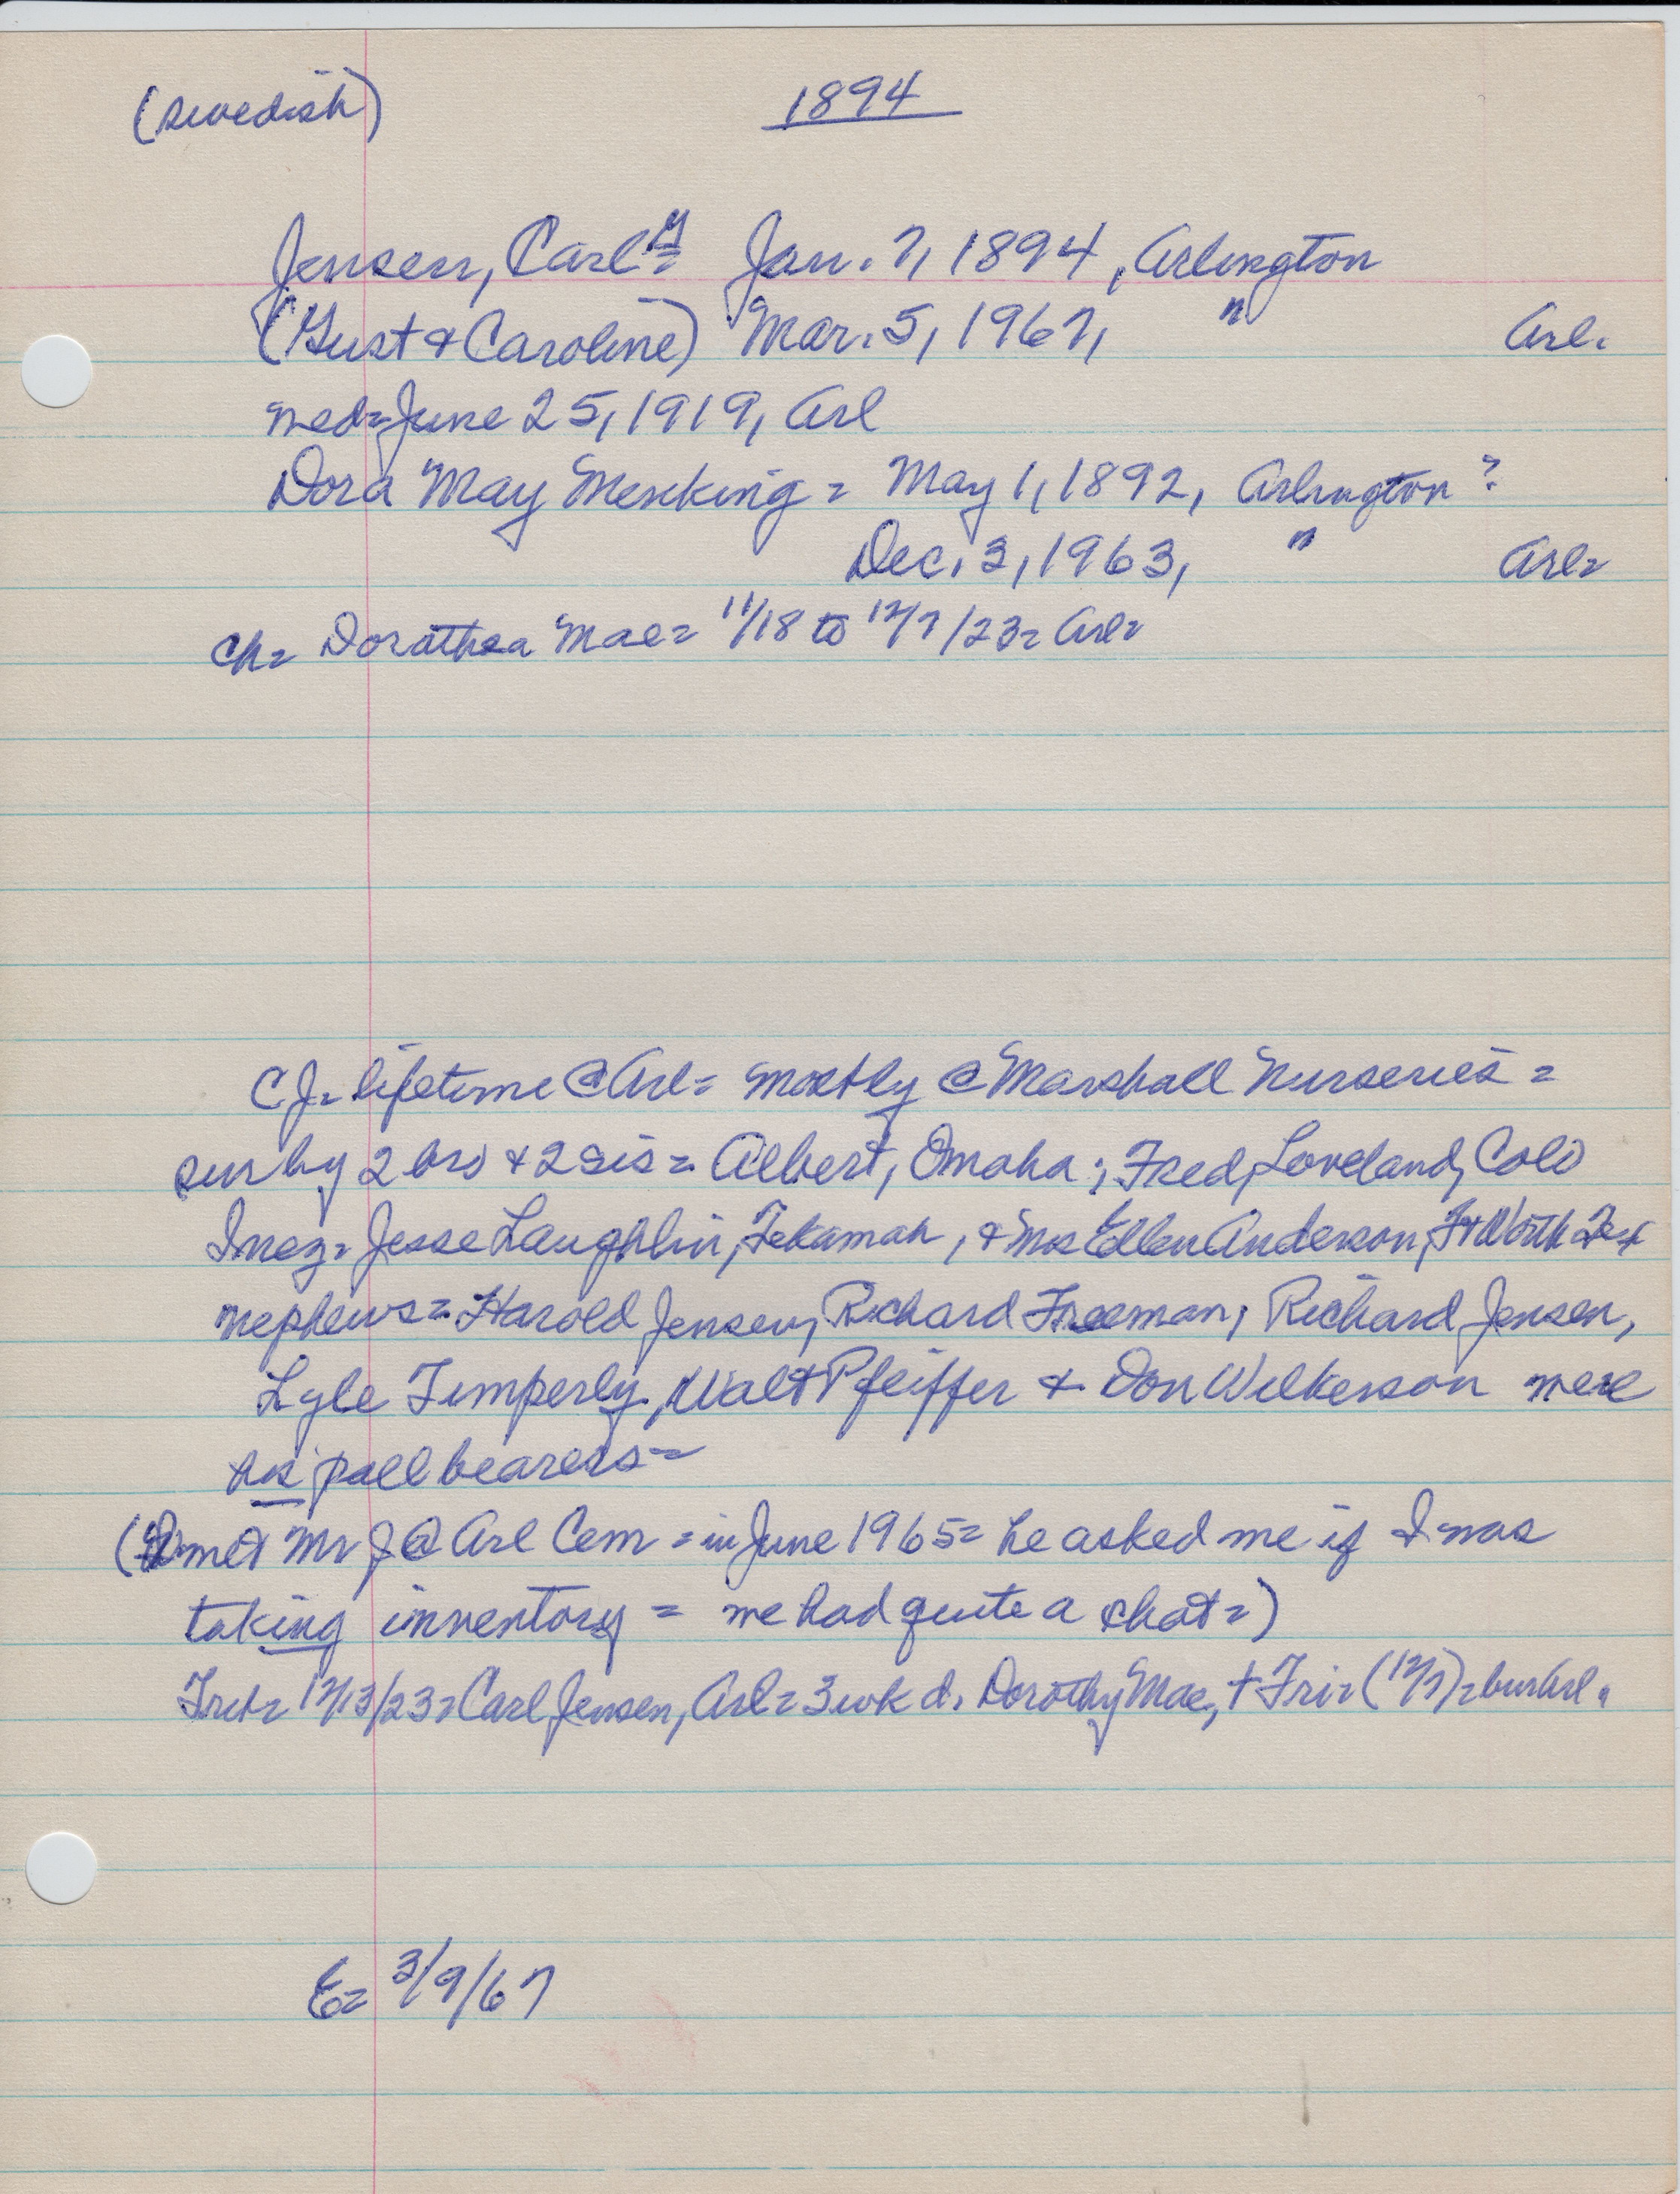 (Swedish) 1894
Jensen, Carl G= Jan. 7, 1894, Arlington
(Gust & Caroline) Mar. 5, 1967, " Arl.
med= June 25, 1919, Arl
Dora May Menking = May 1, 1892, Arlington ?
Dec. 3, 1963, " Arl=
Ch= Dorathea Mae= 11/18 to 12/7/23= Arl=
C J= lifetime @ Arl= mostly @ Marshall Nurseries =
sur by 2 bro & 2 sis = Albert, Omaha; Fred, Loveland, Colo
Inez= Jesse Laughlin, Tekamah, & Mrs Ellen Anderson, Ft Worth Tex
nephews= Harold Jensen, Richard Freeman, Richard Jensen,
Lyle Timperly, Walt Pfeiffer & Don Wilkerson were
his pall bearers=
(I met Mr J @ Arl Cem = in June 1965= he asked me if I was
taking inventory = we had quite a chat=)
Trib= 12/13/23= Carl Jensen, Arl= 3 wk d. Dorothy Mae, + Fri= (12/7)= bur Arl.
E= 3/9/67